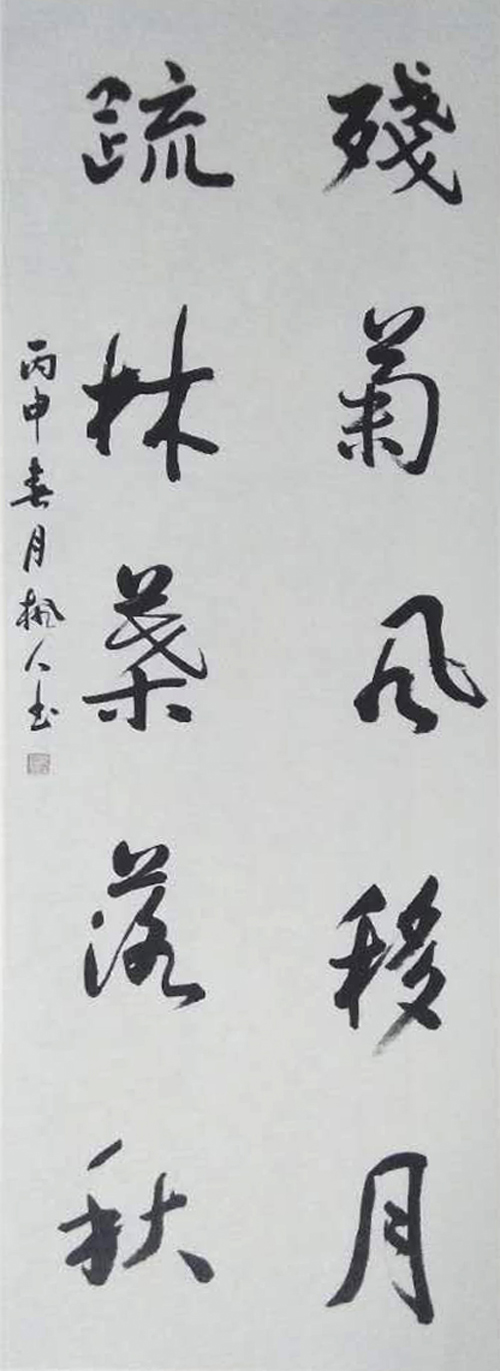 殘菊風移月
疏林葉落秋
丙申春月楓人书